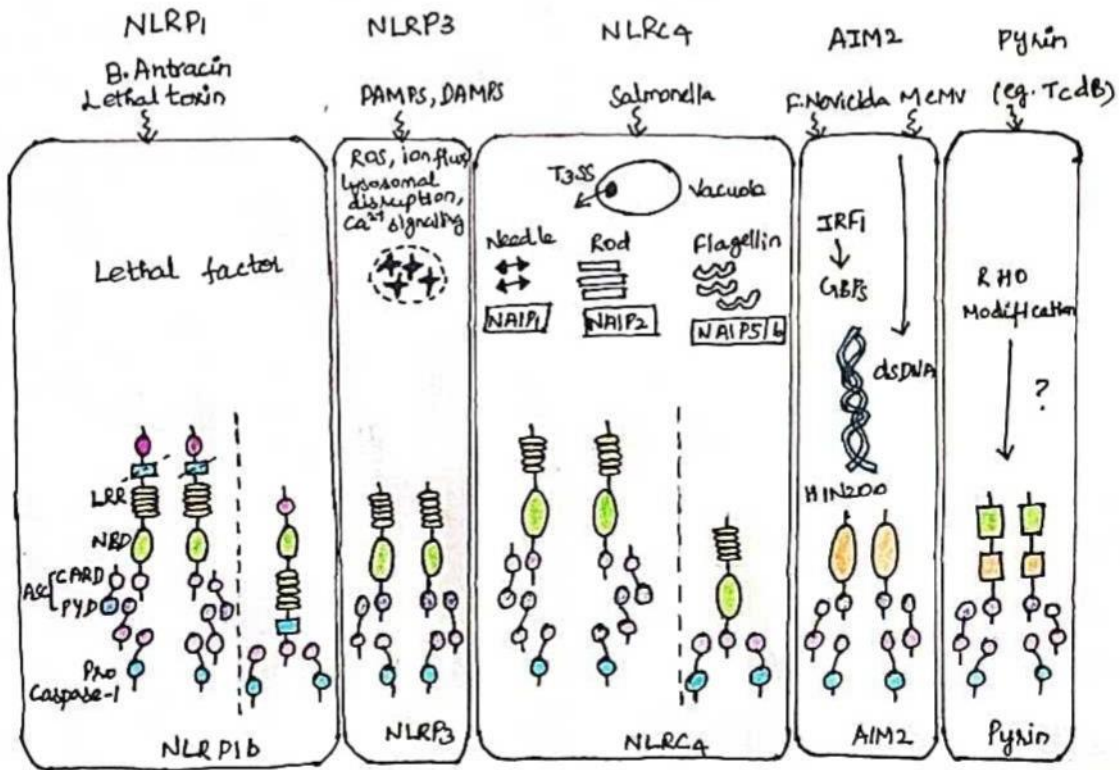 NLRP1
B. Antracin
Lethal toxin
Lethal factor
LRR
NBD
ASC
CARD
PYD
Pro
Caspase-1
NLRP1b
NLRP3
PAMPS, DAMPS
ROS, ion flux,
lysosomal
disruption,
Ca2+ signalling
NLRP3
NLRC4
Salmonella
T3SS
Vacuola
Needle
Rod
Flagellin
NAIP1
NAIP2
NAIP5/6
NLRC4
AIM2
F.Novicida MCMV
IRF1
GBPs
dsDNA
HIN200
AIM2
Pyrin
(eg. TcdB)
RHO
Modification
?
Pyrin